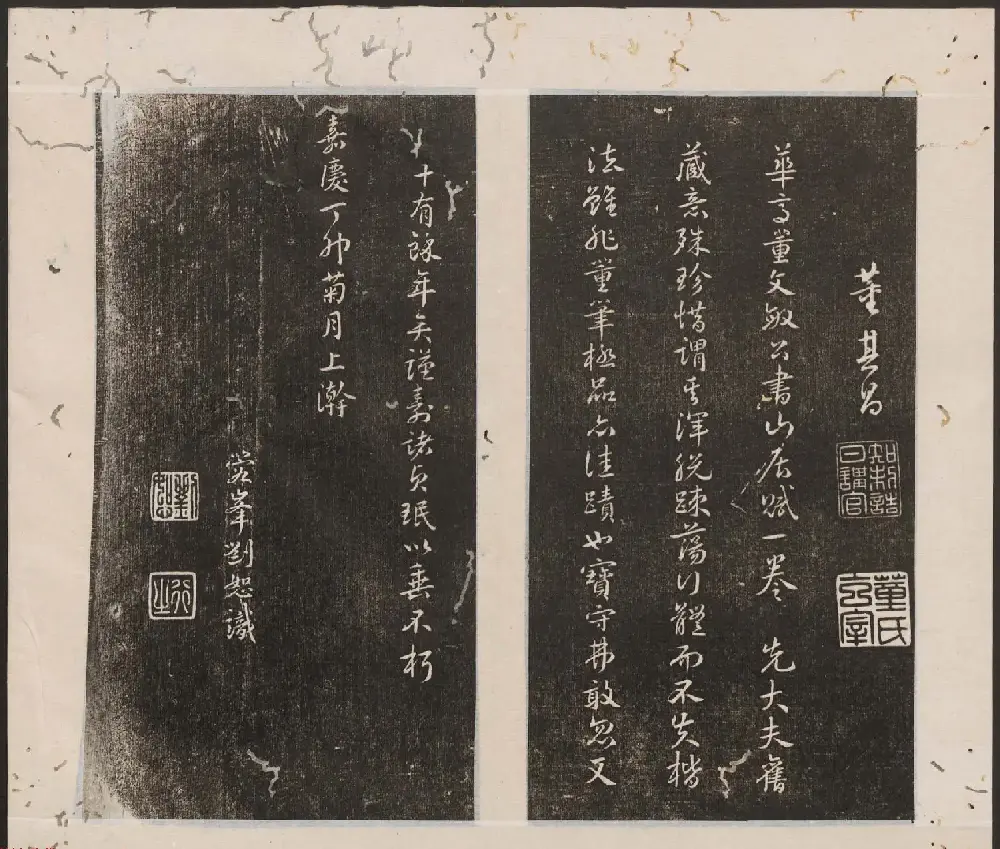 董其昌
知制誥日講官
董氏玄宰
華亭董文敏公書山居賦一卷 先大夫舊
藏意殊珍惜謂其渾脫疎蕩行體而不失楷
法雖非董筆極品亦佳蹟也寶守弗敢忽又
十有餘年矣謹壽諸貞珉以垂不朽
嘉慶丁卯菊月上澣
蓉峯劉恕識
劉恕